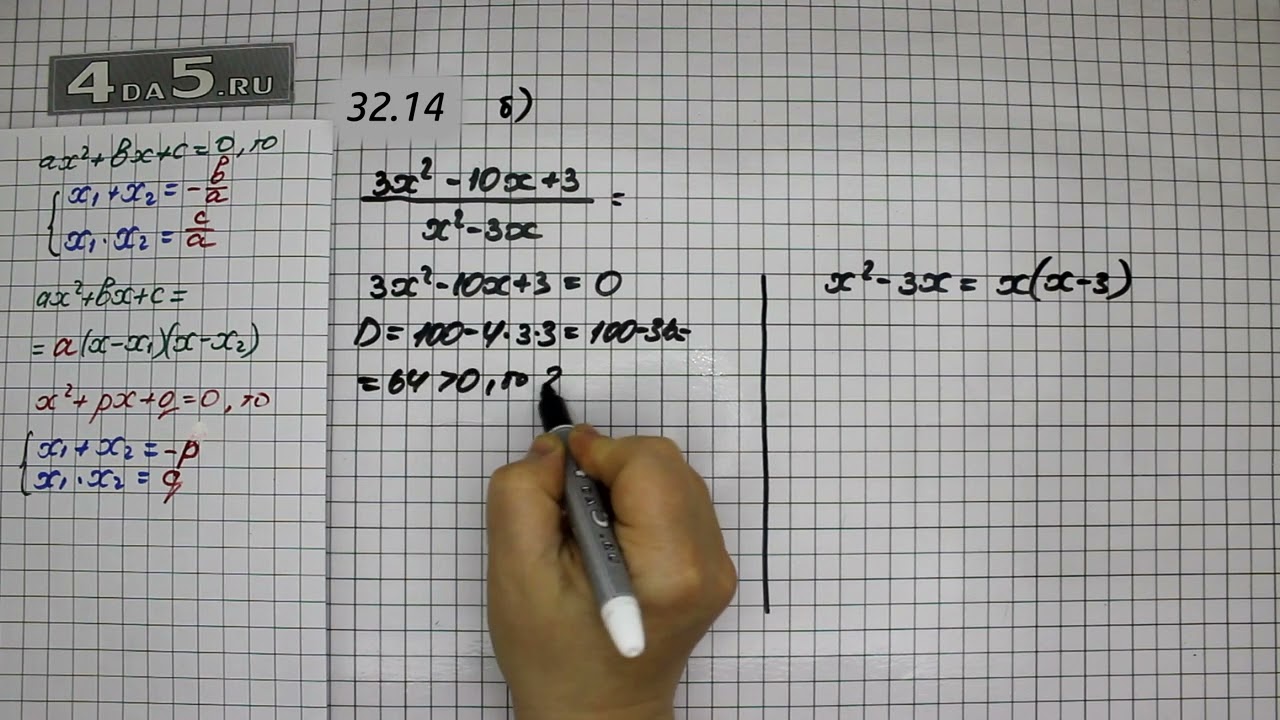 4DA5.RU
32.14 б)
ax²+bx+c=0, то
x₁+x₂=-b/a
x₁·x₂=c/a
ax²+bx+c=
=a(x-x₁)(x-x₂)
x²+px+q=0, то
x₁+x₂=-p
x₁·x₂=q
(3x²-10x+3)/(x²-3x)=
3x²-10x+3=0
D=100-4·3·3=100-36=
=64>0, то 2
x²-3x=x(x-3)